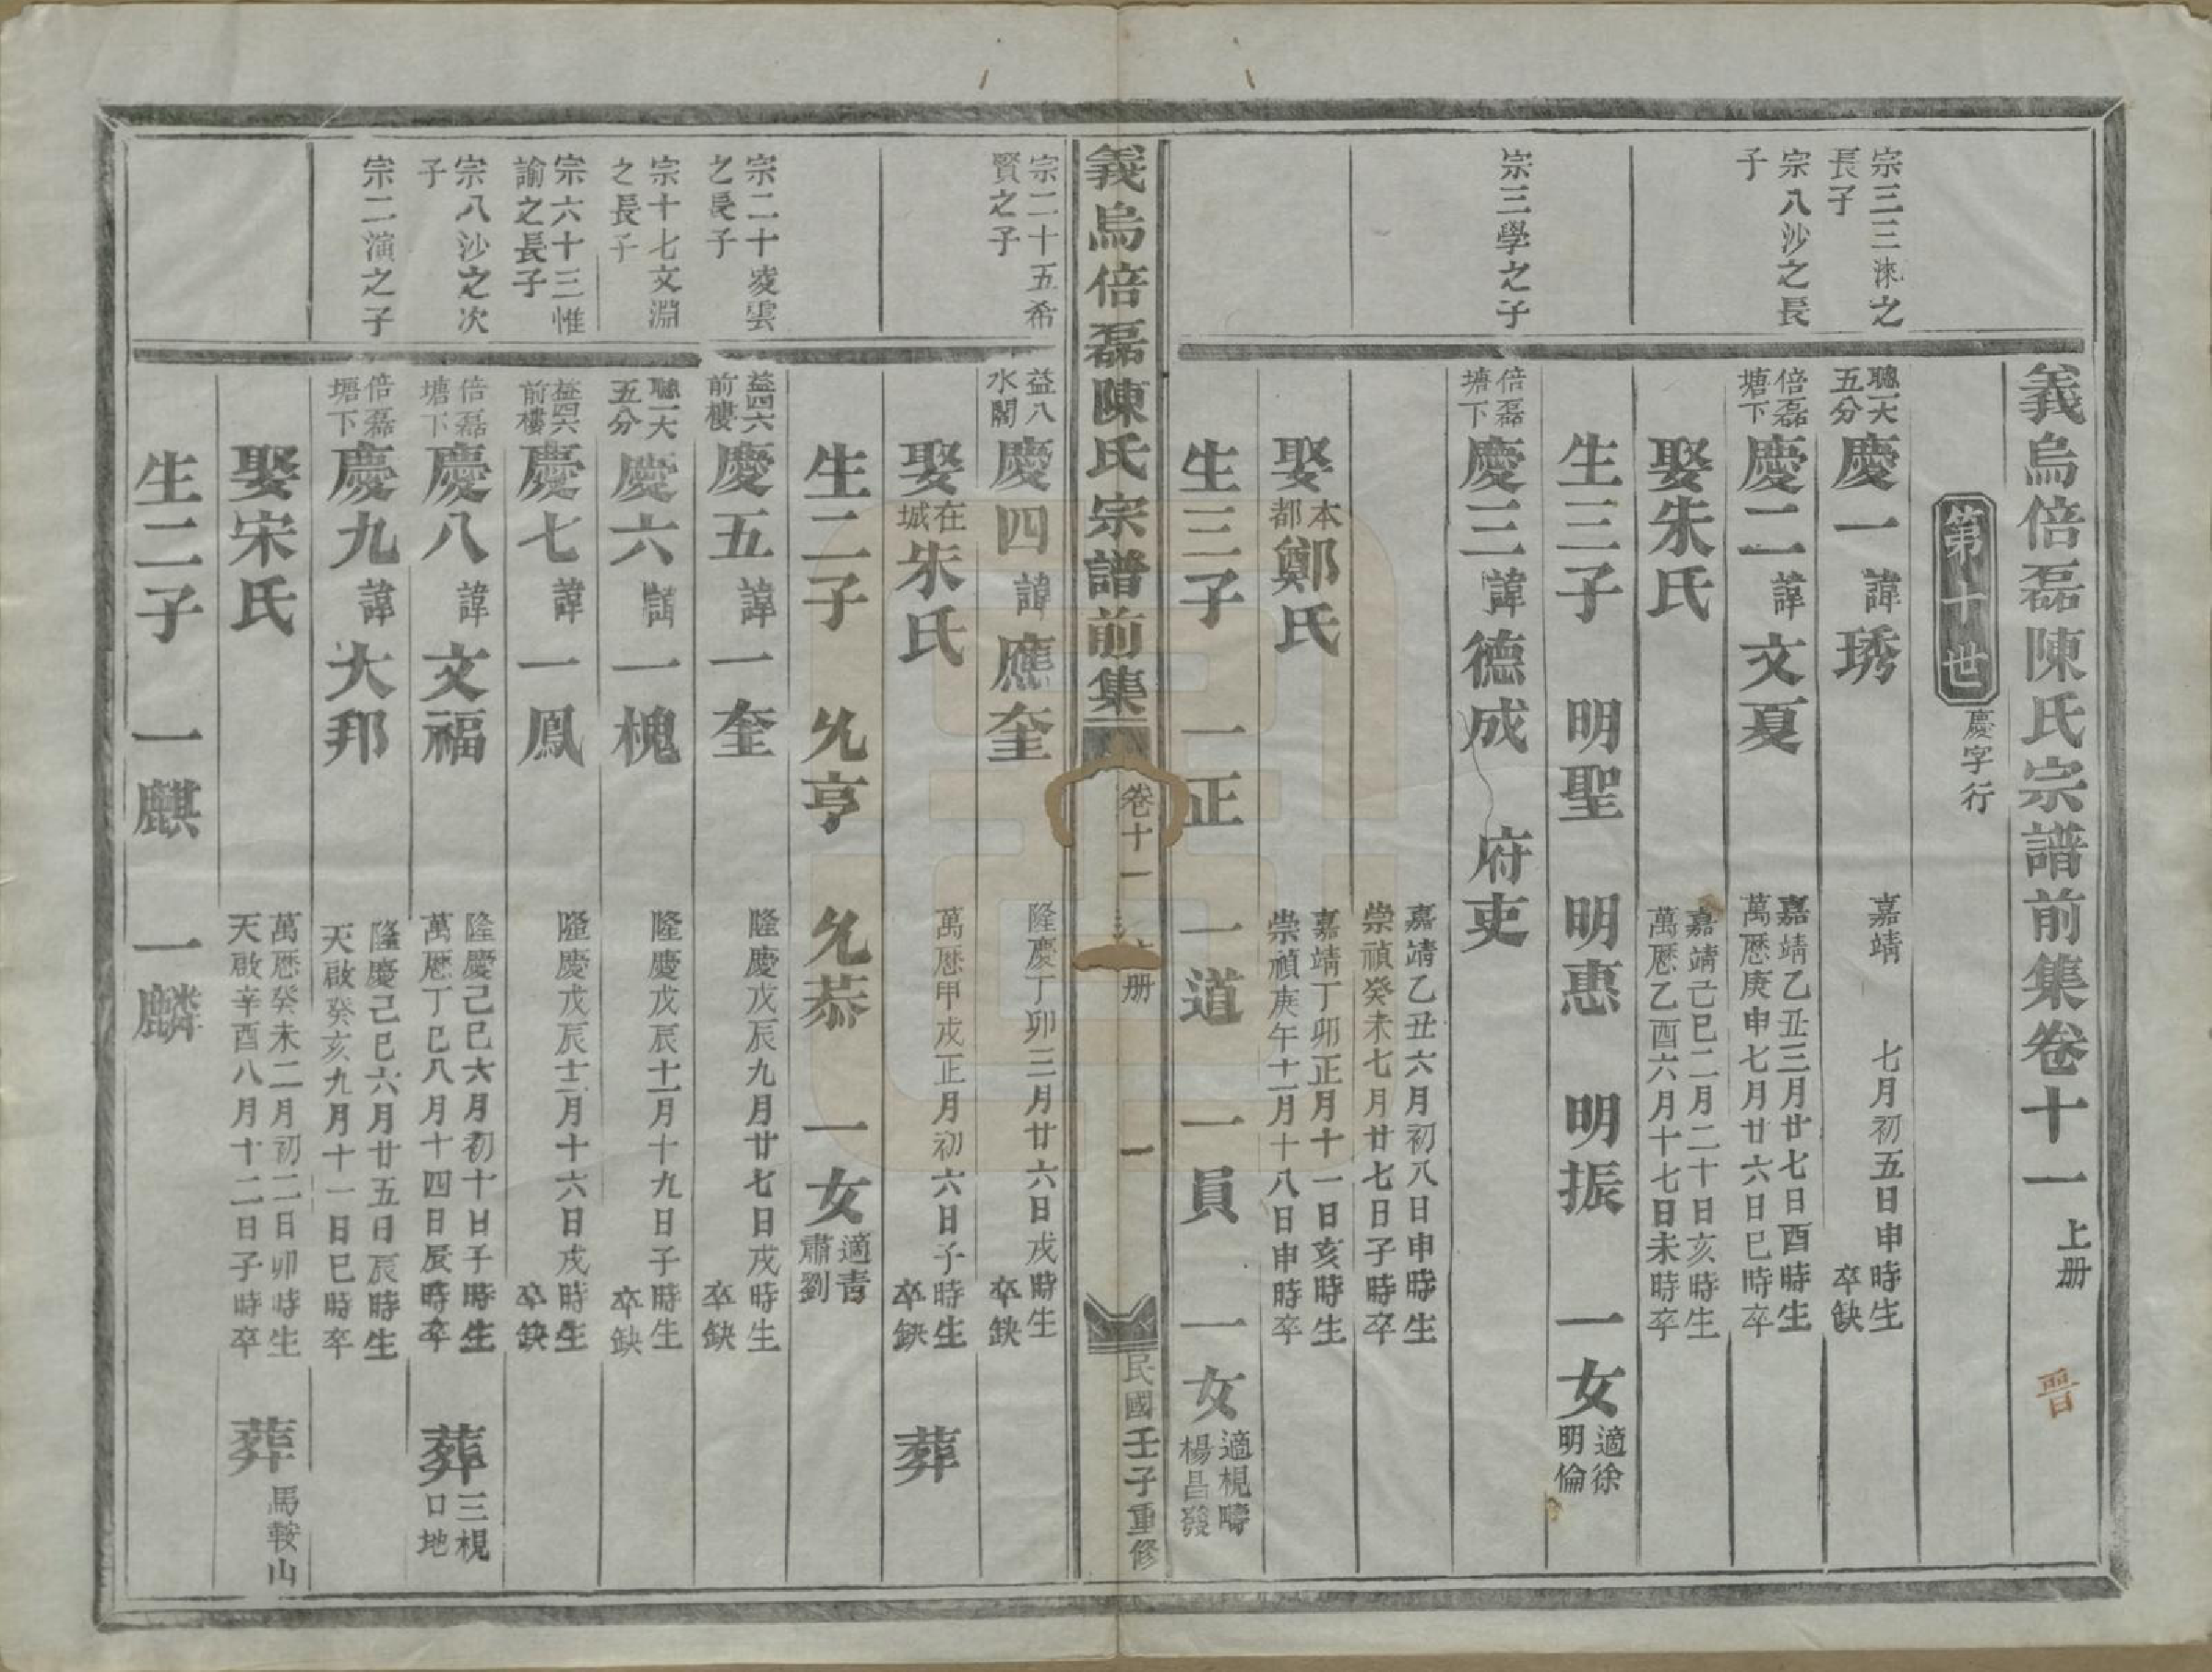 義烏倍磊陳氏宗譜前集卷十一 上册
晋
第十世 慶字行
宗三三淶之
長子
聰一大
五分
慶一 諱 琇
嘉靖 七月初五日申時生
卒缺
宗八沙之長
子
倍磊
塘下
慶二 諱 文夏
嘉靖乙丑三月廿七日酉時生
萬歷庚申七月廿六日巳時卒
娶朱氏
嘉靖己巳二月二十日亥時生
萬歷乙酉六月十七日未時卒
生三子 明聖 明惠 明振 一女
適徐
明倫
宗三學之子
倍磊
塘下
慶三 諱 德成 府吏
嘉靖乙丑六月初八日申時生
崇禎癸未七月廿七日子時卒
娶
本
都
鄭氏
嘉靖丁卯正月十一日亥時生
崇禎庚午十一月十八日申時卒
生三子 一正 一道 一員 一女
適梘疇
楊昌發
義烏倍磊陳氏宗譜前集
卷十一
册
一
民國壬子重修
宗二十五希
賢之子
益八
水閣
慶四 諱 應奎
隆慶丁卯三月廿六日戌時生
卒缺
娶
在
城
朱氏
萬歷甲戌正月初六日子時生
卒缺
葬
生二子 允亨 允恭 一女
適青
肅劉
宗二十凌雲
之長子
益四六
前樓
慶五 諱 一奎
隆慶戊辰九月廿七日戌時生
卒缺
宗十七文淵
之長子
聰一大
五分
慶六 諱 一槐
隆慶戊辰十一月十九日子時生
卒缺
宗六十三惟
諭之長子
益四六
前樓
慶七 諱 一鳳
隆慶戊辰十二月十六日戌時生
卒缺
宗八沙之次
子
倍磊
塘下
慶八 諱 文福
隆慶己巳六月初十日子時生
萬歷丁巳八月十四日辰時卒
葬
三梘
口地
宗二演之子
倍磊
塘下
慶九 諱 大邦
隆慶己巳六月廿五日辰時生
天啟癸亥九月十一日巳時卒
娶宋氏
萬歷癸未二月初二日卯時生
天啟辛酉八月十二日子時卒
葬
馬鞍山
生二子 一麒 一麟